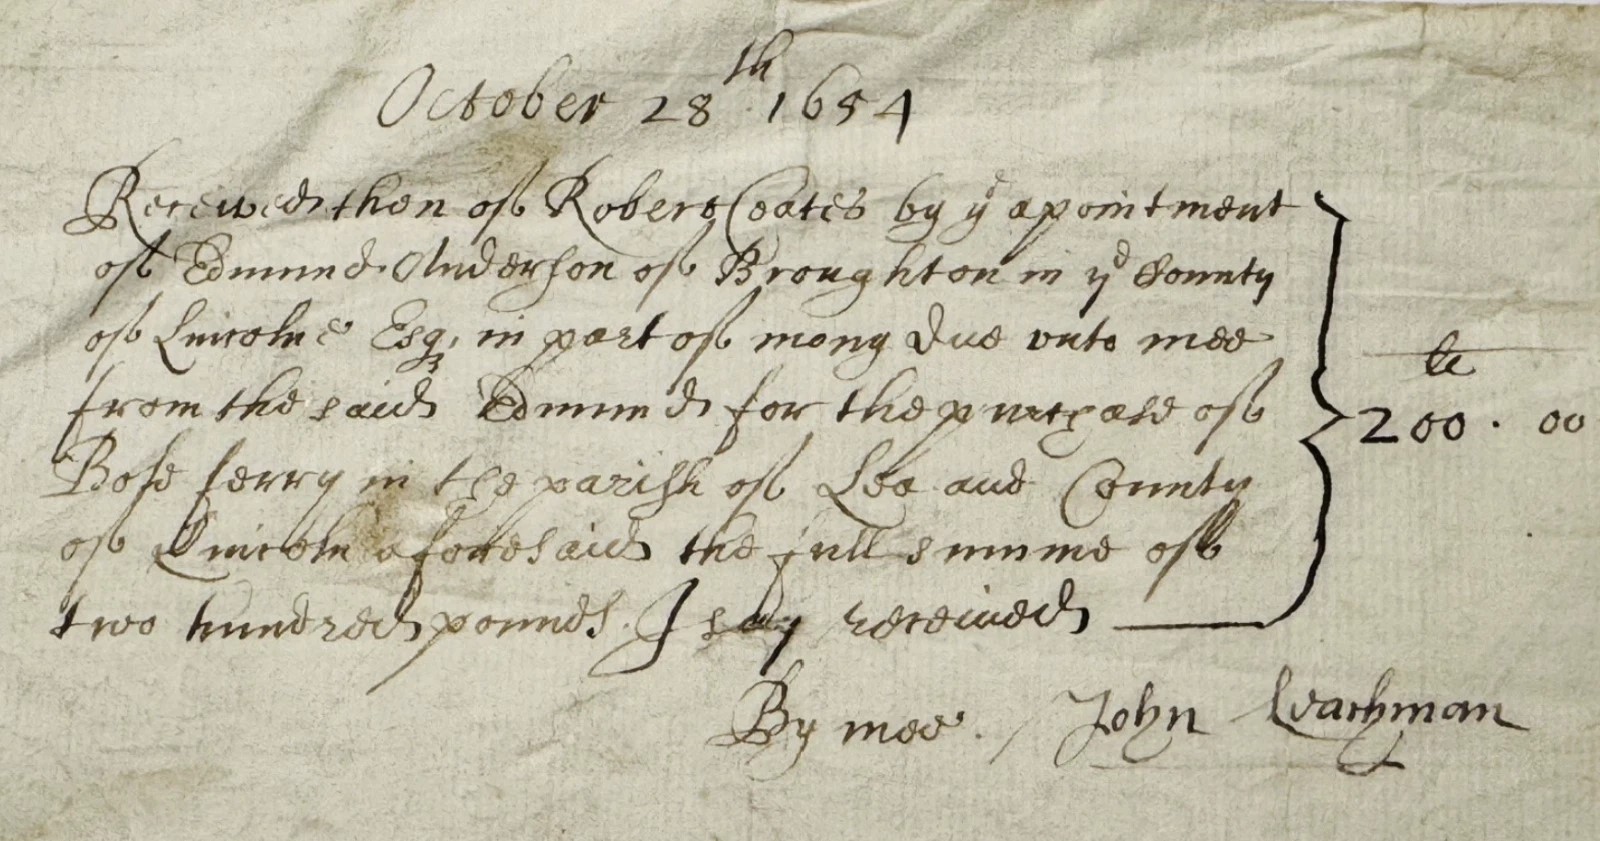 October 28th 1654
Received then of Robert Coates by ye apointment
of Edmund Anderson of Broughton in ye County
of Lincolne Esq; in part of mony due vnto mee
from the said Edmund for the purchase of
Bose ferry in the parish of Lea and County
of Lincoln aforesaid the full summe of
two hundred pounds. I say received
li
200 . 00
By mee. John